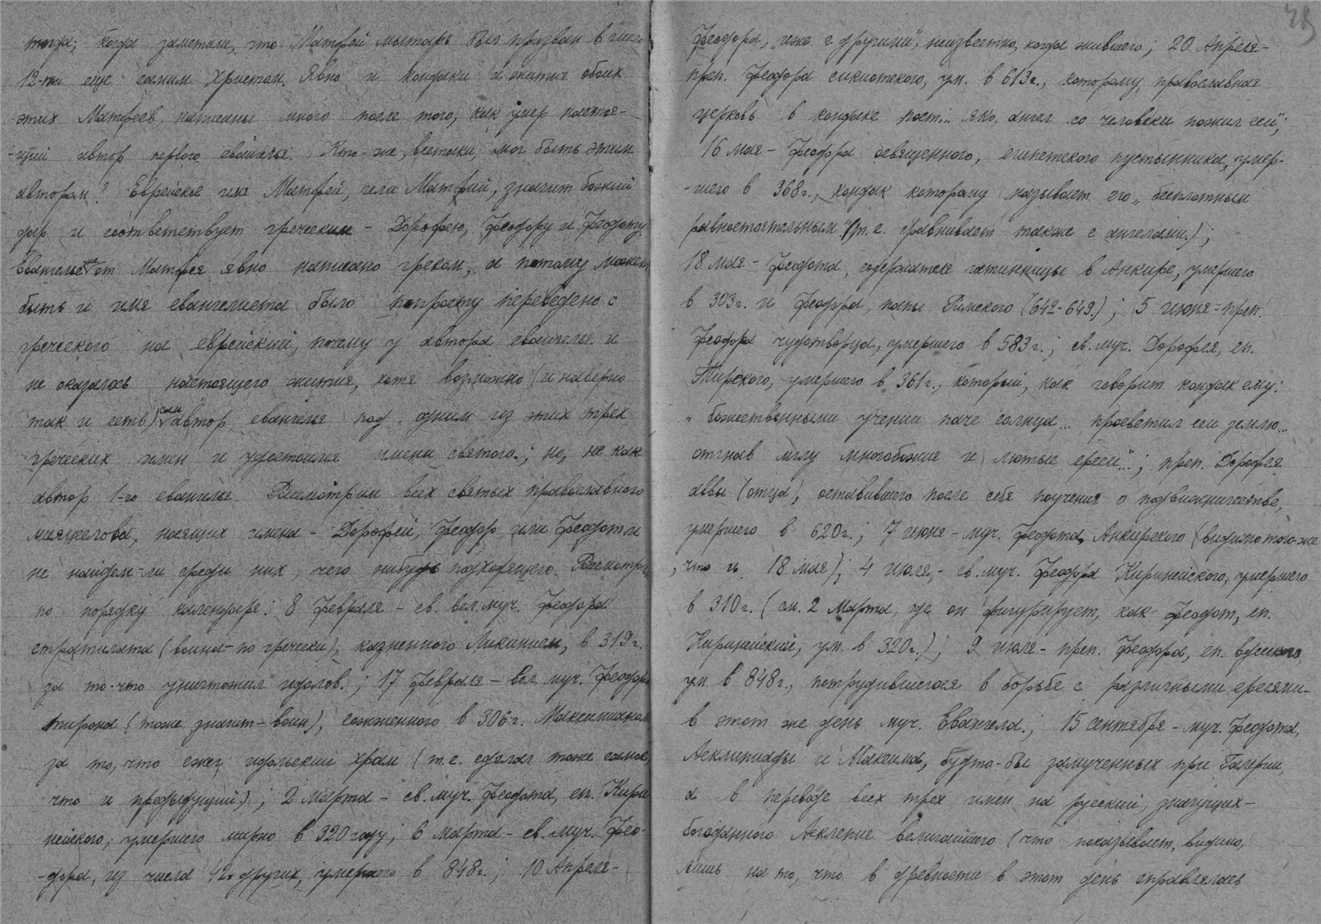 тогда; когда заметали, что Матфей мытарь был призван в число
12-ти еще самим Христом. Явно и кондаки и жития обоих
этих Матфеев, написаны много после того, как умер настоя-
-щий автор первого евангелья. Кто-же, всетаки, мог быть этим
автором? Еврейское имя Матфей, или Матфий, значит божий
дар и соответствует греческим - Дорофею, Феодору и Феодоту.
Евангелие от Матфея явно написано греком, а потому может
быть и имя евангелиста было попросту переведено с
греческого на еврейский, почему у автора евангелья и
не оказалось настоящего жития, хотя возможно (и наверно
так и есть) сам автор евангелья под одним из этих трех
греческих имен и удостоился имени святого.; но, не как
автор 1-го евангелья. Рассмотрим всех святых православного
месяцеслова, носящих имена - Дорофей, Феодор или Феодот и
не найдем-ли среди них, чего нибудь подходящего. Рассмотрим
по порядку календаря: 8 февраля - св. вел. муч. Феодора
стратилата (воина-по гречески), казненного Ликинием, в 319 г.
за то-что уничтожил идолов.; 17 февраля - вел. муч. Феодора
тирона (тоже значит-воин), сожженного в 306 г. Максимианом
за то, что сжег идольский храм (т.е. сделал тоже самое,
что и предыдущий); 2 марта - св. муч. Феодота, еп. Кири-
нейского, умершего мирно в 320 году; 6 марта - св. муч. Фео-
-дора, из числа 42х других, умершего в 848 г.; 10 Апреля-
Феодора, иже с другими, неизвестно, когда жившего; 20 Апреля-
преп. Феодора сикиотского, ум. в 613 г., которому православная
церковь в кондаке поет... яко, ангел со человеки пожил еси";
16 мая - Феодора освященного, египетского пустынника, умер-
-шего в 368 г., кондак которому называет его „бесплотным
равностоятельным" (т.е. сравнивает также с ангелами.);
18 мая - Феодота, содержателя гостинницы в Анкире, умершего
в 303 г. и Феодора, папы Римского (642-649.); 5 июня - преп.
Феодора чудотворца, умершего в 583 г.; св. муч. Дорофея, еп.
Тирского, умершего в 361 г., который, как говорит кондак ему:
„ божественными учении паче солнца... просветил еси землю...
отгнав мглу многобожие и лютые ереси"...; преп. Дорофея
аввы (отца), оставившего после себя поучения о подвижничестве,
умершего в 620 г.; 7 июня - муч. Феодота, Анкирского (видимо того-же
, что и 18 мая); 4 июля, - св. муч. Феодора Киринейского, умершего
в 310 г. (см. 2 Марта, где он фигурирует, как Феодот, еп.
Киринейский, ум. в 320 г.); 9 июля - преп. Феодора, еп.
ум. в 848 г., потрудившегося в борьбе с различными ересями-
в этот же день муч. Евангела.; 15 сентября - муч. Феодота,
Асклипиады и Максима, будто-бы замученных при
а в переводе всех трех имен на русский, значущих-
богоданного Асклепие величайшего (что показывает, видимо,
лишь на то, что в древности в этот день справлялась